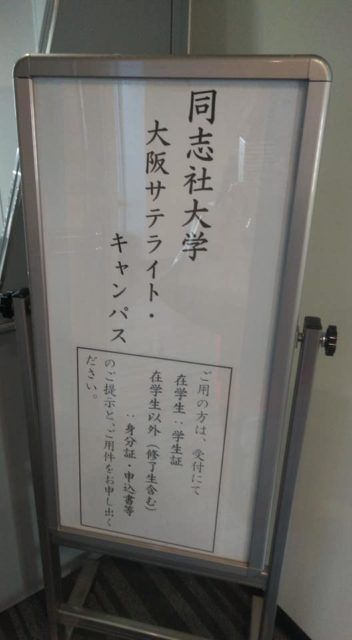 同志社大学
大阪サテライト・
キャンパス
ご用の方は、受付にて
在学生：学生証
在学生以外（修了生含む）
：身分証・申込書等
のご提示と、ご用件をお申し出く
ださい。